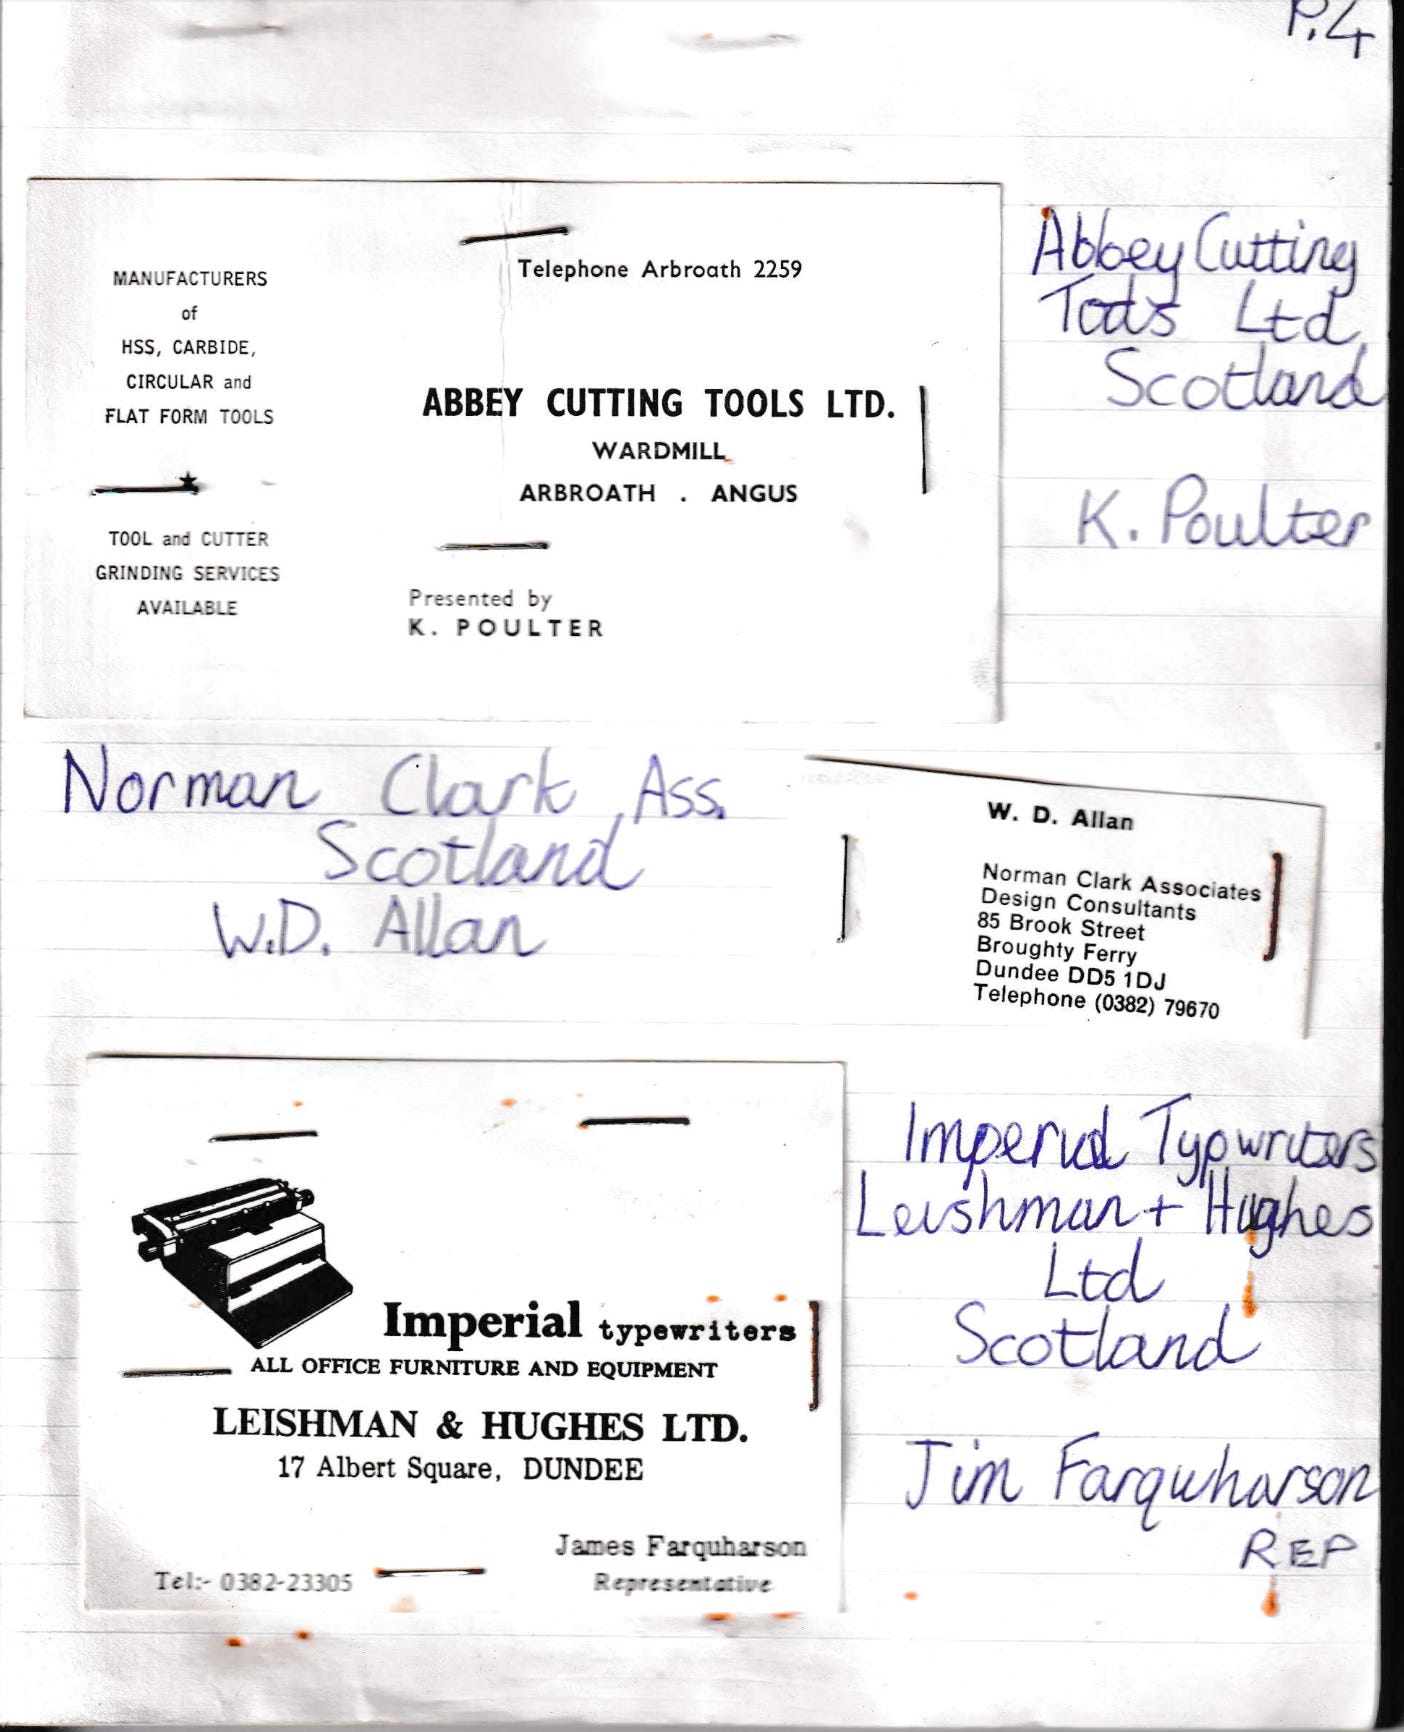 P.4
MANUFACTURERS
of
HSS, CARBIDE,
CIRCULAR and
FLAT FORM TOOLS
TOOL and CUTTER
GRINDING SERVICES
AVAILABLE
Telephone Arbroath 2259
ABBEY CUTTING TOOLS LTD.
WARDMILL
ARBROATH . ANGUS
Presented by
K. POULTER
Abbey Cutting
Tools Ltd
Scotland
K. Poulter
Norman Clark Ass.
Scotland
W.D. Allan
W. D. Allan
Norman Clark Associates
Design Consultants
85 Brook Street
Broughty Ferry
Dundee DD5 1DJ
Telephone (0382) 79670
Imperial typewriters
ALL OFFICE FURNITURE AND EQUIPMENT
LEISHMAN & HUGHES LTD.
17 Albert Square, DUNDEE
James Farquharson
Tel:- 0382-23305 Representative
Imperial Typwriters
Leishman + Hughes
Ltd
Scotland
Jim Farquharson
REP